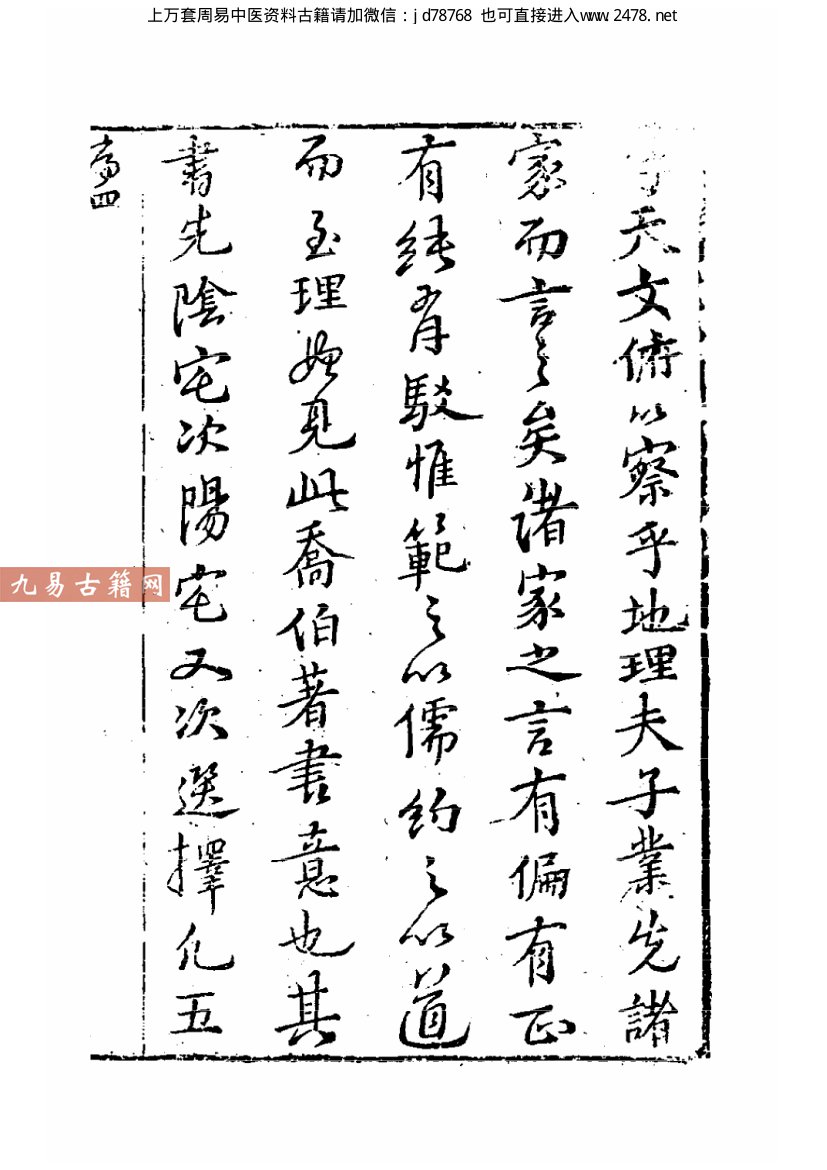 上万套周易中医资料古籍请加微信：jd78768 也可直接进入www.2478.net
于天文俯以察乎地理夫子業先諸
家而言之矣諸家之言有偏有正
有純有駁惟範之以儒約之以道
而至理始見此喬伯著書意也其
書先陰宅次陽宅又次選擇凡五
九易古籍网